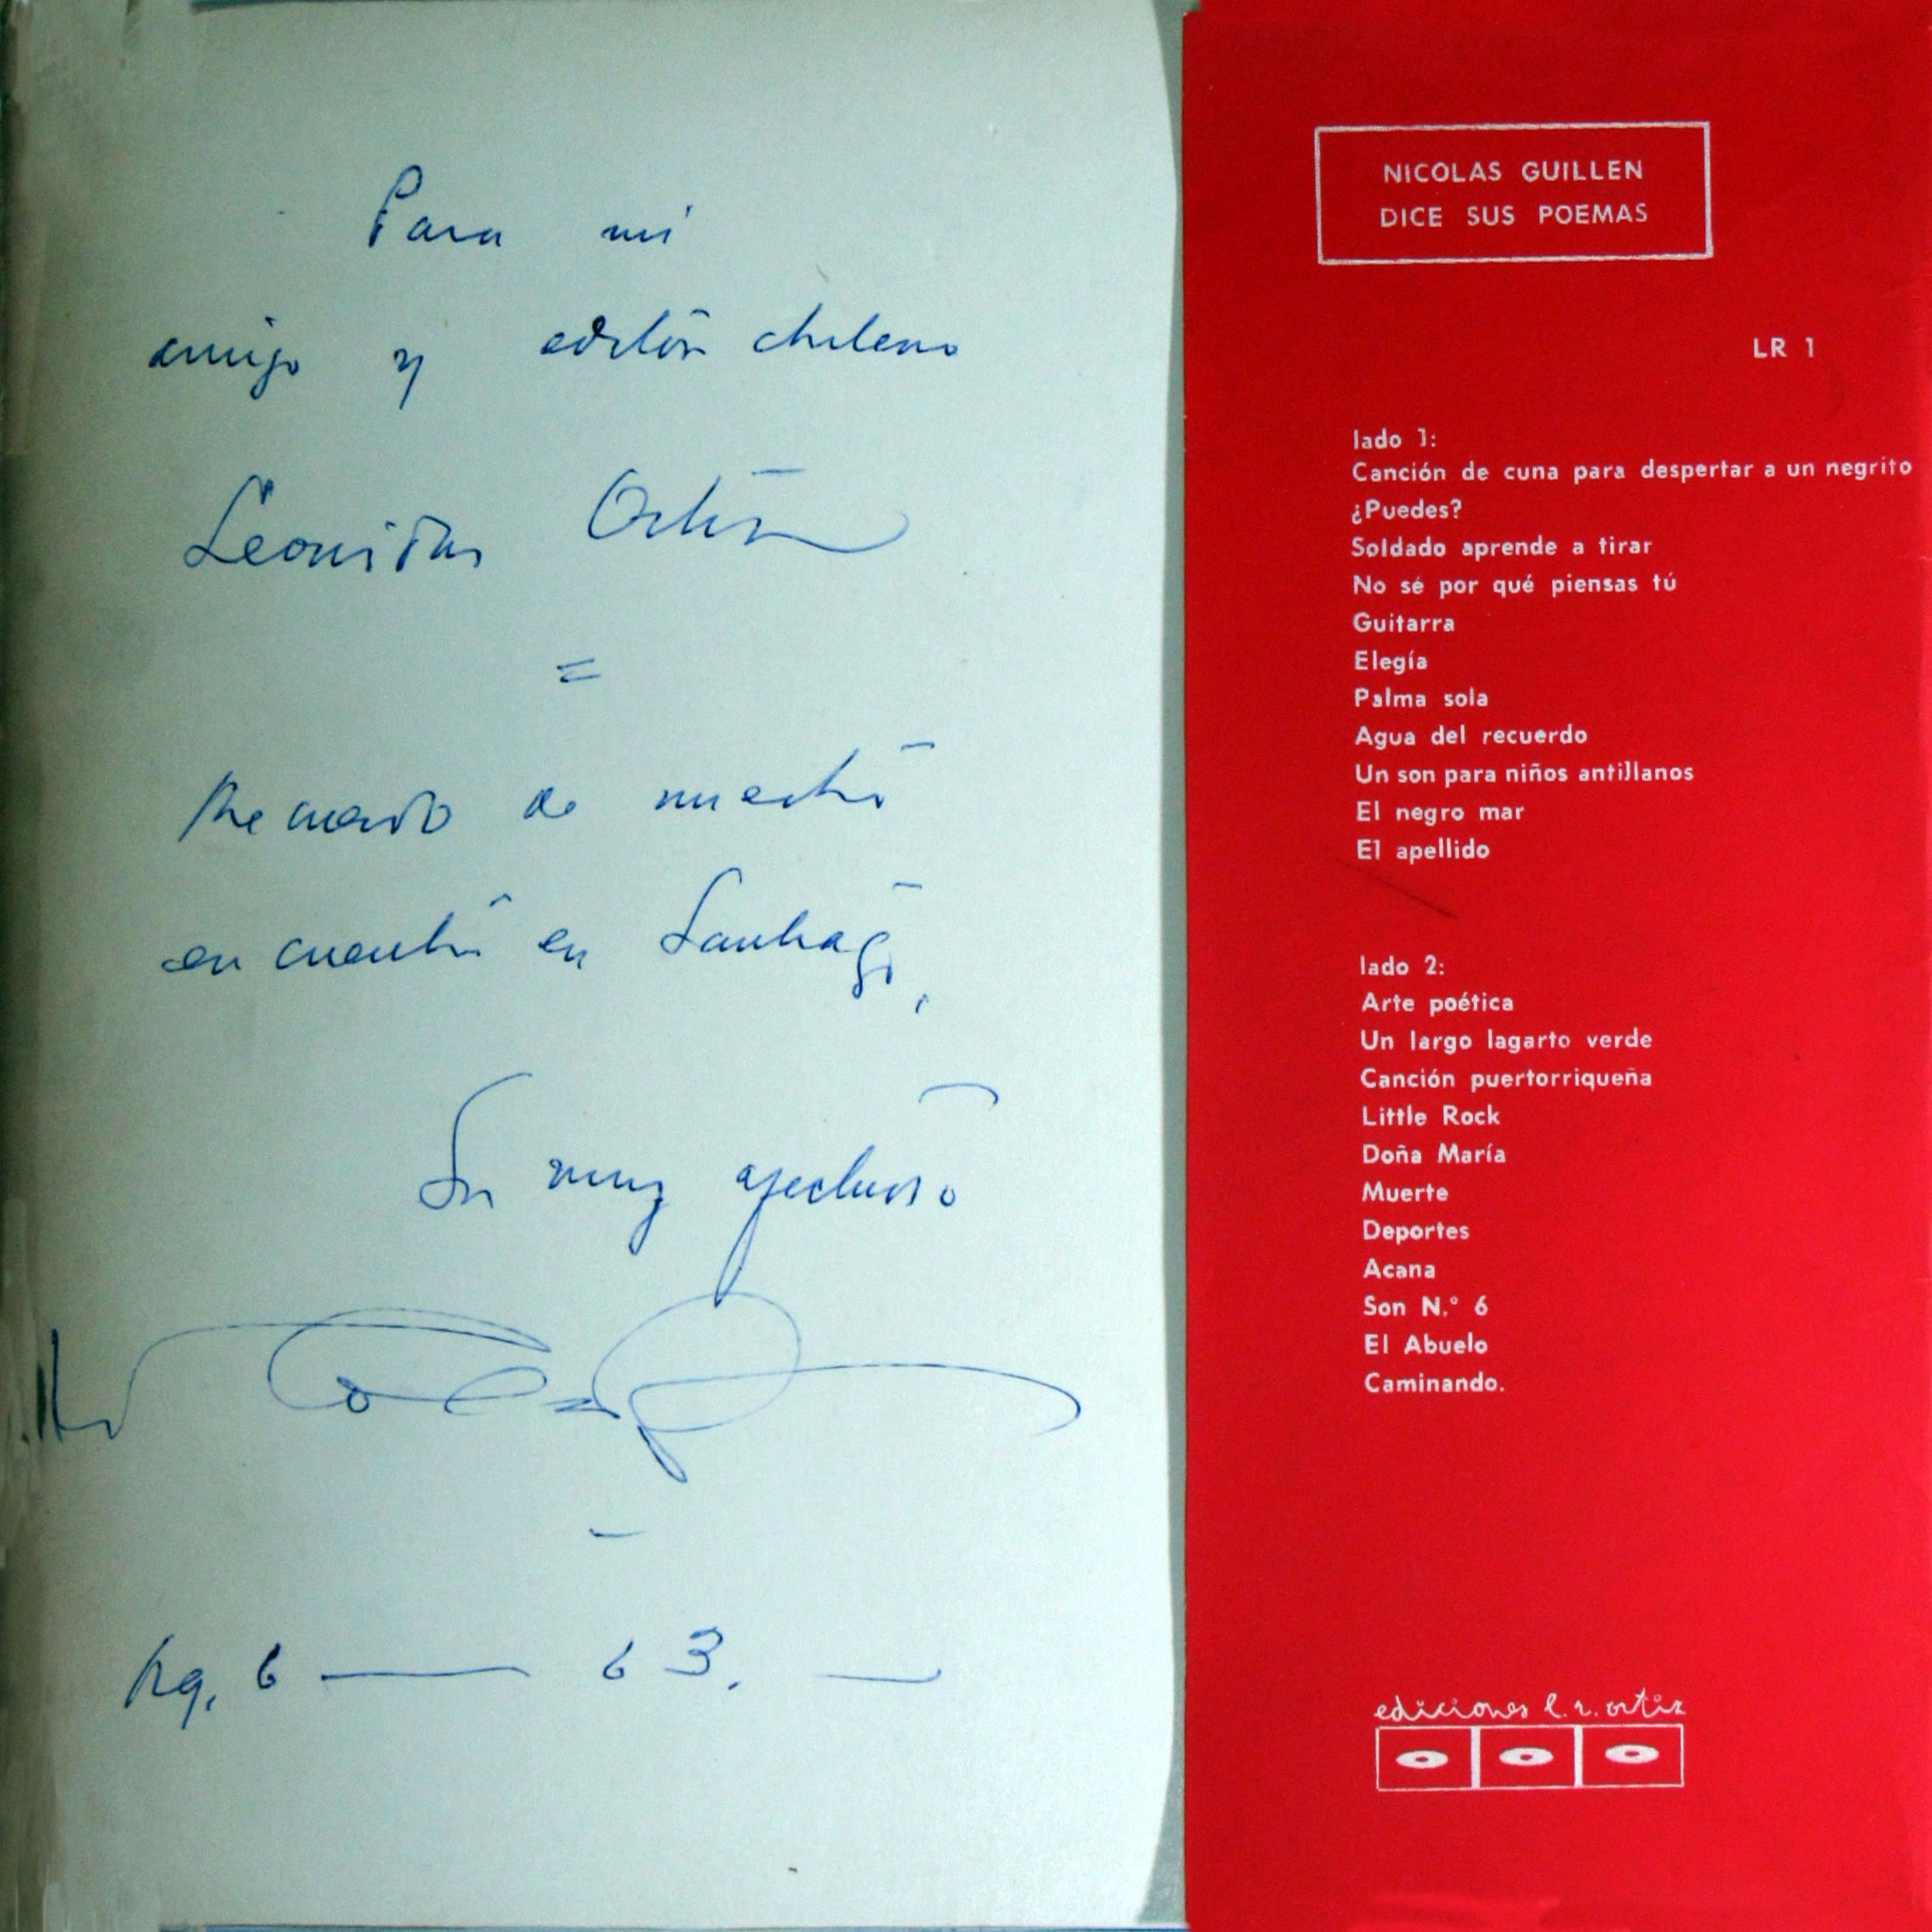 Para mi
amigo y editor chileno
Leonidas Ortiz
=
Recuerdo de nuestro
encuentro en Santiago,
Su muy afectuoso
6 — 63. —
NICOLAS GUILLEN
DICE SUS POEMAS
LR 1
lado 1:
Canción de cuna para despertar a un negrito
¿Puedes?
Soldado aprende a tirar
No sé por qué piensas tú
Guitarra
Elegía
Palma sola
Agua del recuerdo
Un son para niños antillanos
El negro mar
El apellido
lado 2:
Arte poética
Un largo lagarto verde
Canción puertorriqueña
Little Rock
Doña María
Muerte
Deportes
Acana
Son N.° 6
El Abuelo
Caminando.
ediciones l. r. ortiz